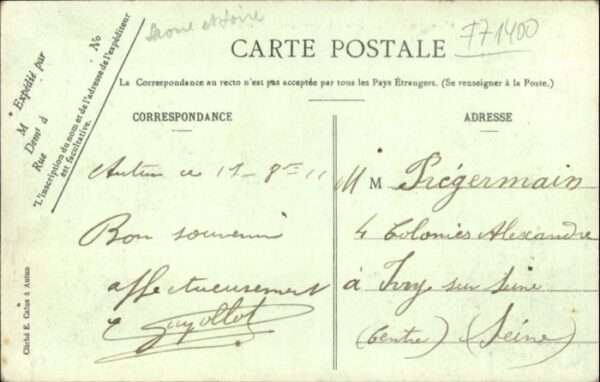 Saone et Loire
F71400
CARTE POSTALE
La Correspondance au recto n'est pas acceptée par tous les Pays Étrangers. (Se renseigner à la Poste.)
* Expédié par
M
Demt à
Rue
No
*L'inscription du nom et de l'adresse de l'expéditeur
est facultative.
CORRESPONDANCE
Autun ce 15 - 8re 11
Bon souvenir
affectueusement
E Guyollot
Cliché E. Calus à Autun
ADRESSE
M M Prégermain
4 Colonies Alexandre
à Ivry sur Seine
(Centre) (Seine)